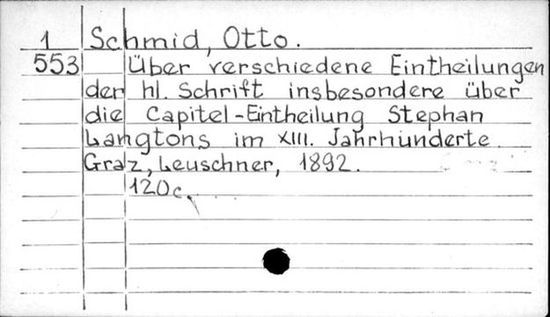 1 Schmid, Otto.
553 Über verschiedene Eintheilungen
der hl. Schrift insbesondere über
die Capitel-Eintheilung Stephan
Langtons im XIII. Jahrhunderte.
Graz, Leuschner, 1892.
120c.